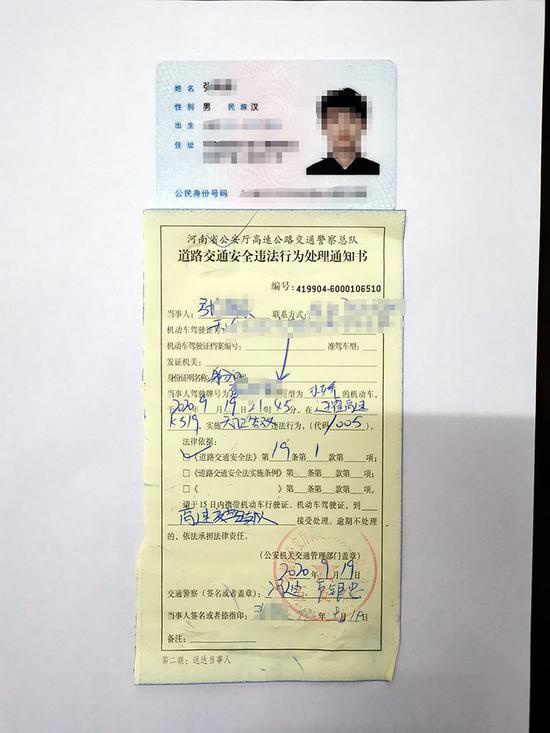 姓名 张
性别 男 民族 汉
出生
住址
公民身份号码
河南省公安厅高速公路交通警察总队
道路交通安全违法行为处理通知书
编号:419904-6000106510
当事人: 张 联系方式:
机动车驾驶证
机动车驾驶证档案编号: 准驾车型:
发证机关:
身份证明名称 身份证
当事人驾驶牌号为 类型为 的机动车,
于2020年9月19日21时45分,在
K519,实施 违法行为,(代码 1005)。
法律依据:
☑《道路交通安全法》第19条第1款第 项;
□《道路交通安全法实施条例》第 条第 款第 项;
□《 》第 条第 款第 项;
请于15日内携带机动车行驶证、机动车驾驶证,到
高速交警支队 接受处理。逾期不处理
的,依法承担法律责任。
(公安机关交通管理部门盖章)
2020年9月19日
交通警察(签名或者盖章):
当事人签名或者捺指印: 张 2020年9月19日
备注:
第二联:送达当事人